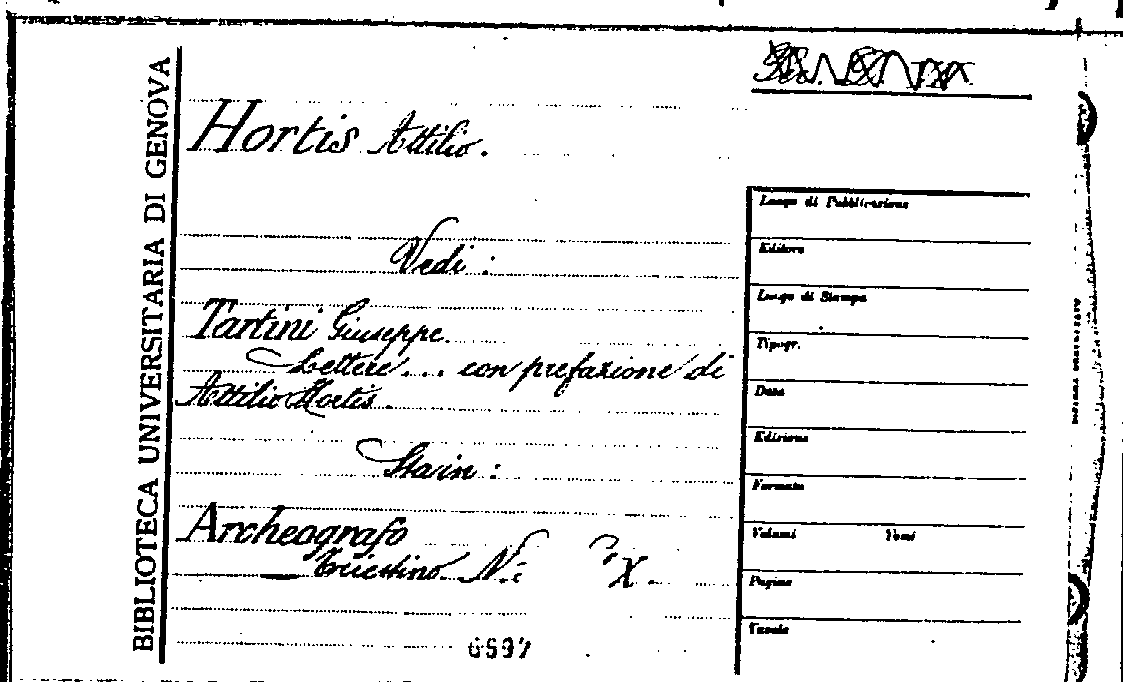 BIBLIOTECA UNIVERSITARIA DI GENOVA
Hortis Attilio.
Vedi :
Tartini Giuseppe
Lettere... con prefazione di
Attilio Hortis.
Sta in :
Archeografo
Triestino N. X.
6697
Luogo di Pubblicazione
Editore
Luogo di Stampa
Tipogr.
Data
Edizione
Formato
Volumi Tomi
Pagine
Tavole